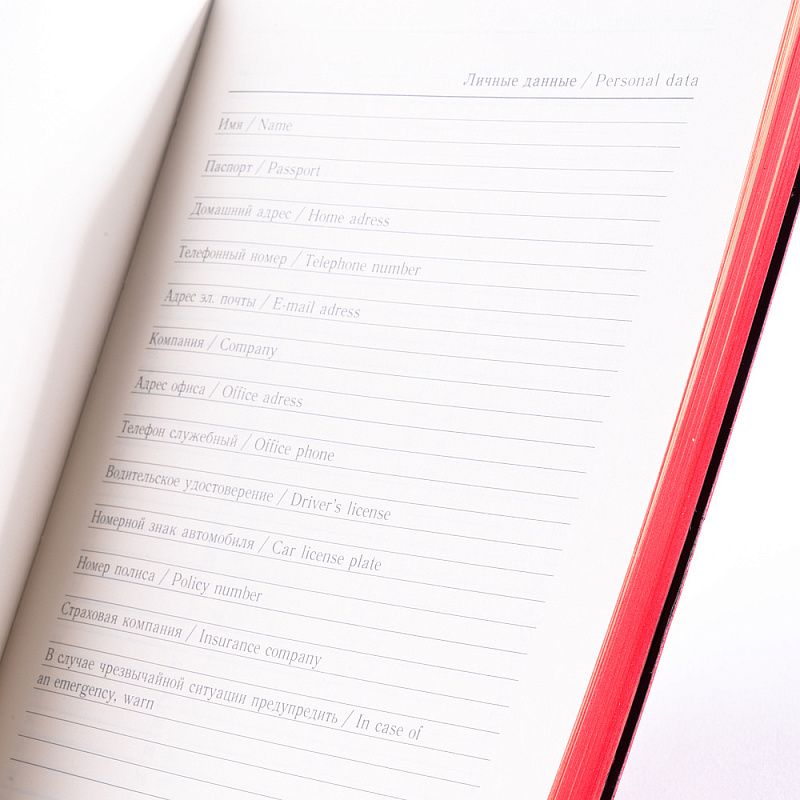 Личные данные / Personal data
Имя / Name
Паспорт / Passport
Домашний адрес / Home adress
Телефонный номер / Telephone number
Адрес эл. почты / E-mail adress
Компания / Company
Адрес офиса / Office adress
Телефон служебный / Office phone
Водительское удостоверение / Driver's license
Номерной знак автомобиля / Car license plate
Номер полиса / Policy number
Страховая компания / Insurance company
В случае чрезвычайной ситуации предупредить / In case of
an emergency, warn